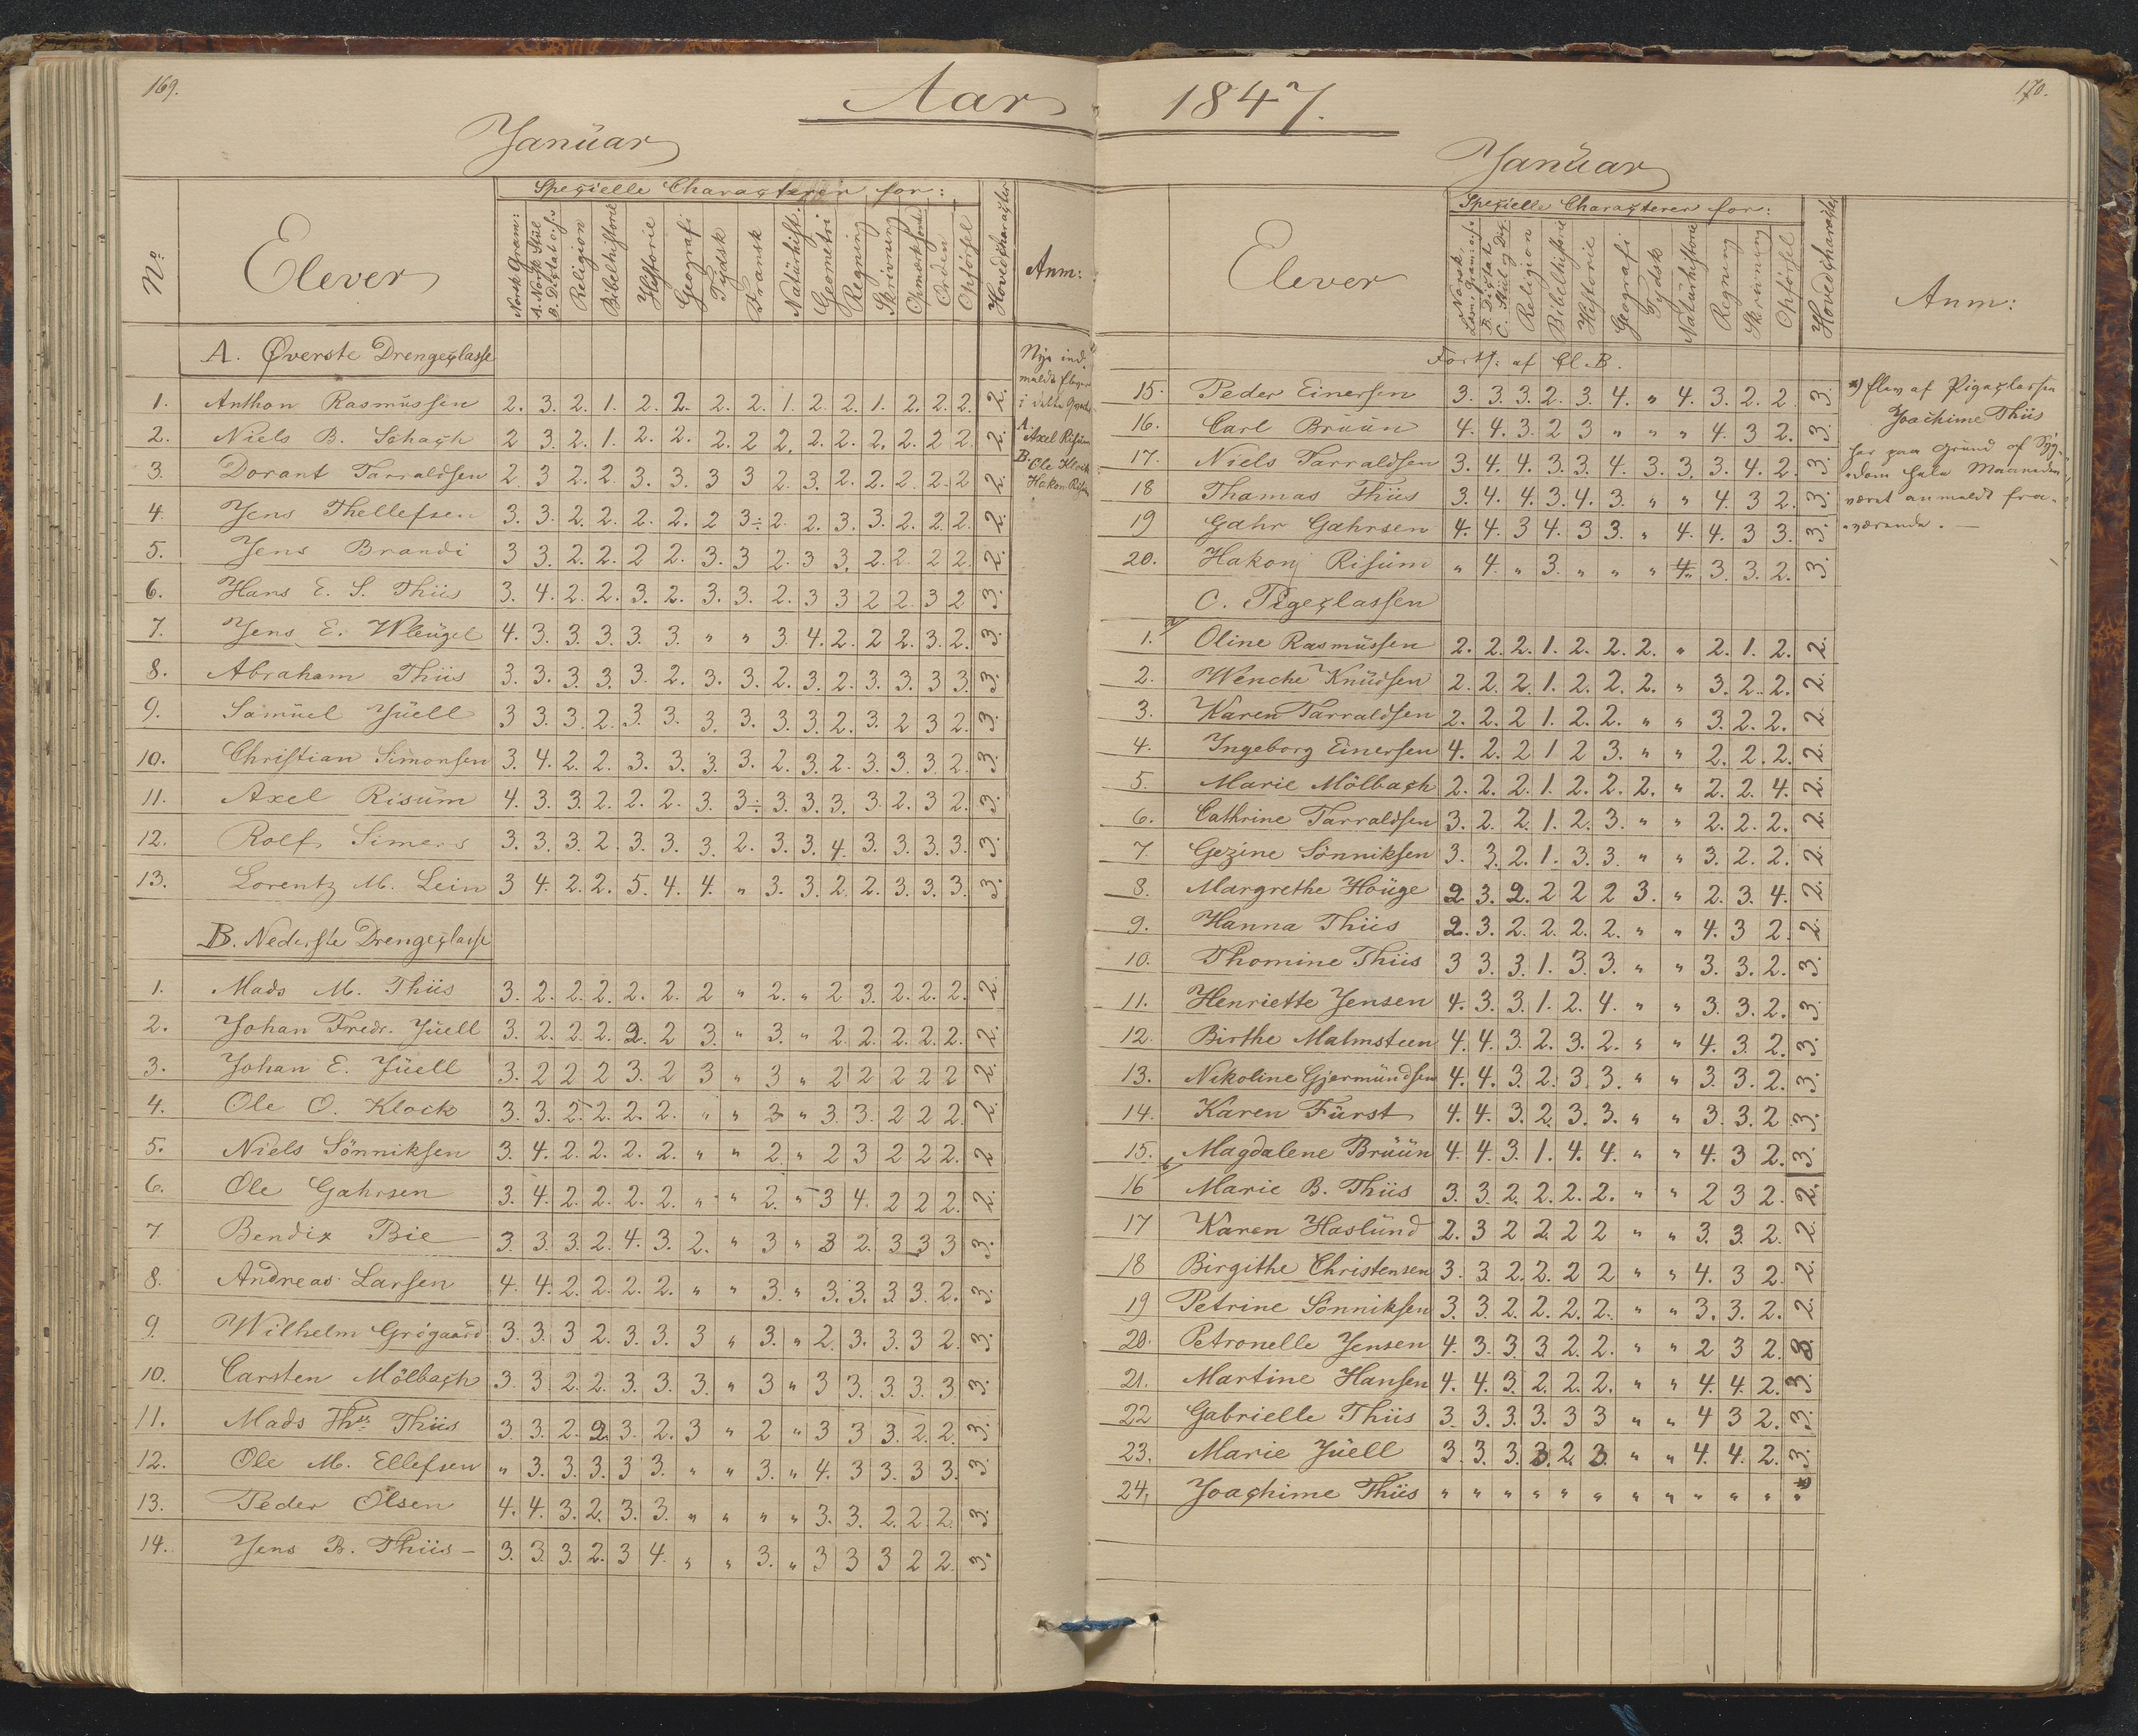 169.
Aar
Januar
No
Elever
Specielle Characterer for:
Norsk Gram:
A. Norsk Stiil
B. Dictat o.s.v
Religion
Bibelhistorie
Historie
Geografi
Tydsk
Fransk
Naturhist.
Geometri
Regning
Skrivning
Opmærksomh
Orden
Opførsel
Hovedcharacter
Anm:
A. Øverste Drengeclasse
1. Anthon Rasmussen 2. 3. 2. 1. 2. 2. 2. 2. 1. 2. 2. 1. 2. 2. 2. 2.
2. Niels B. Schach 2 3. 2. 1. 2. 2. 2. 2 2. 2. 2. 2. 2. 2 2. 2.
3. Dorant Tarraldsen 2. 3 2. 2. 3. 3. 3 3 2. 3. 2. 2. 2. 2. 2 2.
4. Jens Thellefsen 3. 3. 2. 2. 2. 2. 2 3÷ 2. 2. 3. 3. 2. 2. 2. 2.
5. Jens Brandi 3 3. 2. 2. 2 2. 3. 3 2. 3 3. 2. 2. 2 2. 2.
6. Hans E. S. Thiis 3. 4. 2. 2. 3. 2. 3. 3. 2. 3 3 2 2. 3 2 3.
7. Jens E. Wleugel 4. 3. 3. 3. 3. 3. " " 3. 4. 2. 2 2. 3. 2. 3.
8. Abraham Thiis 3. 3. 3. 3. 3. 2. 3. 3. 2. 3. 2. 3. 3. 3 3. 3.
9. Samuel Juell 3 3. 3. 2. 3. 3. 3. 3. 3. 3. 2. 3. 2 3 2. 3.
10. Christian Simonsen 3. 4. 2. 2. 3. 3. 3. 3. 2. 3. 2. 3. 3. 3. 2. 3.
11. Axel Risum 4. 3. 3. 2. 2. 2. 3. 3÷ 3. 3. 3. 3. 2. 3 2. 3.
12. Rolf Simers 3. 3. 3. 2. 3. 3. 3. 2. 3. 3. 4. 3. 3. 3. 3. 3.
13. Lorentz M. Lein 3 4. 2. 2. 5. 4. 4. " 3. 3. 2. 2. 3. 3. 3. 3.
B. Nederste Drengeclasse
1. Mads M. Thiis 3. 2. 2. 2. 2. 2. 2 " 2. " 2 3. 2. 2. 2. 2.
2. Johan Fredr. Juell 3. 2. 2. 2. 2. 2 3. " 3. " 2. 2. 2. 2. 2. 2.
3. Johan E. Juell 3. 2 2 2 3. 2 3 " 3 " 2 2 2 2 2 2.
4. Ole O. Klock 3. 3. 2. 2. 2. 2. " " 3 " 3. 3. 2 2 2. 2.
5. Niels Sönniksen 3. 4. 2. 2. 2. 2. " " 2. " 2 3 2 2 2. 2
6. Ole Gahrsen 3. 4. 2. 2. 2. 2. " " 2. " 3 4. 2 2 2. 2.
7. Bendix Bie 3. 3. 3. 2. 4. 3. 2. " 3 " 3 2. 3 3 3 3.
8. Andreas Larsen 4. 4. 2. 2. 2. 2. " " 3. " 3. 3. 3. 3. 2. 3.
9. Wilhelm Grögaard 3. 3. 3 2. 3. 3. 3 " 3. " 2. 3. 3. 3 2. 3.
10. Carsten Mölbach 3. 3. 2. 2. 3. 3. 3. " 3 " 3 3. 3. 3. 3 3.
11. Mads Ths. Thiis 3. 3. 2. 2. 3. 2. 3 " 2 " 3 3 3. 2. 2. 3.
12. Ole M. Ellefsen " 3. 3. 3. 3 3. " " 3. " 4. 3 3. 3 3. 3.
13. Peder Olsen 4. 4. 3. 2. 3. 3. " " " " 3. 3. 2. 2. 2. 3.
14. Jens B. Thiis 3. 3. 3. 2. 3 4. " " 3. " 3 3 3 2 2. 3.
Nye ind-
meldte Elever
i dette Qvartal
A. Axel Risum
B. Ole Klock
Hakon Risum
170.
1847.
Januar
Elever
Specielle Characterer for:
Norsk,
Læsn, Gram: o.s.v
B. Dictat
C. Stiil og Dic.
Religion
Bibelhistorie
Historie
Geografi
Tydsk
Naturhistorie
Regning
Skrivning
Opførsel
Hovedcharacter
Anm:
Forts: af Cl. B.
15. Peder Einersen 3. 3. 3. 2. 3. 4. " 4. 3. 2. 2 3.
16. Carl Bruun 4. 4. 3. 2 3 " " " 4. 3 2. 3.
17. Niels Tarraldsen 3. 4. 4. 3. 3. 4. 3. 3. 3. 4. 2. 3.
18 Thomas Thiis 3. 4. 4. 3. 4. 3. " " 4. 3 2. 3.
19 Gahr Gahrsen 4. 4. 3 4. 3 3. " 4. 4. 3 3. 3.
20. Hakon Risum " 4. " 3. " " " 4. 3. 3. 2. 3.
C. Pigeclassen
1. Oline Rasmussen 2. 2. 2. 1. 2. 2. 2. " 2. 1. 2. 2.
2. Wenche Knudsen 2. 2. 2. 1. 2. 2. 2. " 3. 2. 2. 2.
3. Karen Tarraldsen 2. 2. 2 1. 2. 2. " " 3. 2. 2. 2.
4. Ingeborg Einersen 4. 2. 2 1 2 3. " " 2. 2. 2. 2.
5. Marie Mölbach 2. 2. 2. 1. 2. 2. 2. " 2. 2. 4. 2.
6. Cathrine Tarraldsen 3. 2. 2. 1. 2. 3. " " 2. 2. 2. 2.
7. Gezine Sönniksen 3. 3. 2. 1. 3. 3. " " 3. 2. 2. 2.
8. Margrethe Houge 2. 3. 2. 2 2 2 3. " 2. 3. 4. 2.
9. Hanna Thiis 2. 3. 2. 2. 2. 2. " " 4. 3 2. 2.
10. Thomine Thiis 3 3. 3. 1. 3. 3. " " 3. 3. 2. 3.
11. Henriette Jensen 4. 3. 3. 1. 2. 4. " " 3. 3. 2. 3.
12. Birthe Malmsteen 4. 4. 3. 2. 3. 2. " " 4. 3. 2. 3.
13. Nikoline Gjermundsen 4. 4. 3. 2. 3. 3. " " 3. 3. 2. 3.
14. Karen Fürst 4. 4. 3. 2. 3. 3. " " 3. 3. 2 3.
15. Magdalene Bruun 4. 4. 3. 1. 4. 4. " " 4. 3 2. 3.
16 Marie B. Thiis 3. 3. 2. 2. 2. 2. " " 2 3 2. 2.
17 Karen Haslund 2. 3 2 2. 2 2 " " 3. 3. 2. 2.
18 Birgithe Christensen 3. 3 2. 2. 2 2 " " 4. 3 2. 2.
19 Petrine Sönniksen 3. 3 2. 2. 2. 2. " " 3. 3. 2. 2.
20. Petronelle Jensen 4. 3. 3. 3 2. 2. " " 2 3 2. 3.
21. Martine Hansen 4. 4. 3. 2. 2. 2. " " 4. 4. 2. 3.
22 Gabrielle Thiis 3. 3. 3. 3. 3 3 " " 4 3 2. 3.
23. Marie Juell 3. 3. 3. 3. 2. 3. " " 4. 4. 2. 3.
24, Joachime Thiis " " " " " " " " " " " "
*) Elev af Pigeclassen
Joachime Thiis
har paa Grund af Syg-
dom hele Maaneden
været anmeldt fra-
værende. —